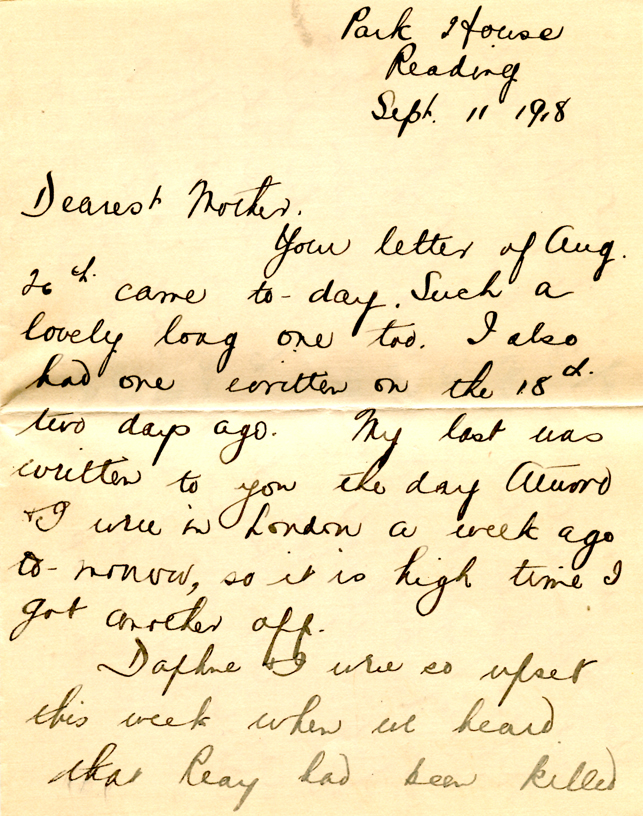 Park House
Reading
Sept. 11 1918
Dearest Mother.
Your letter of Aug.
26th. came to-day. Such a
lovely long one too. I also
had one written on the 18th.
two days ago. My last was
written to you the day
& I were in London a week ago
to-morrow, so it is high time I
got another off.
Daphne & I were so upset
this week when we heard
that Reay had been killed